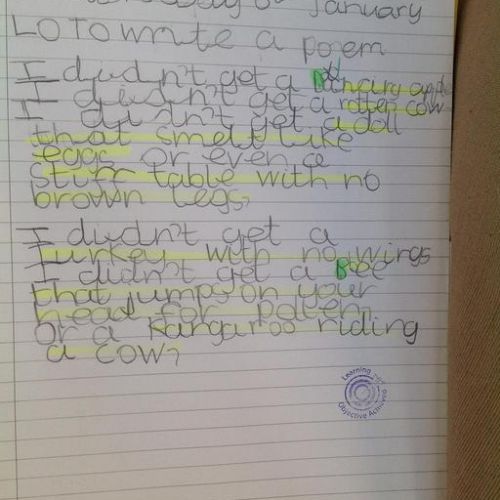 January
LO To write a poem
I didn't get a apple
I didn't get a rotten cow
I didn't get a doll
that smelt like
eggs or even a
stiff table with no
brown legs,
I didn't get a
Turkey with no wings
I didn't get a Bee
that jumps on your
head for pollen,
Or a kangaroo riding
a cow,
Learning
Objective Achieved